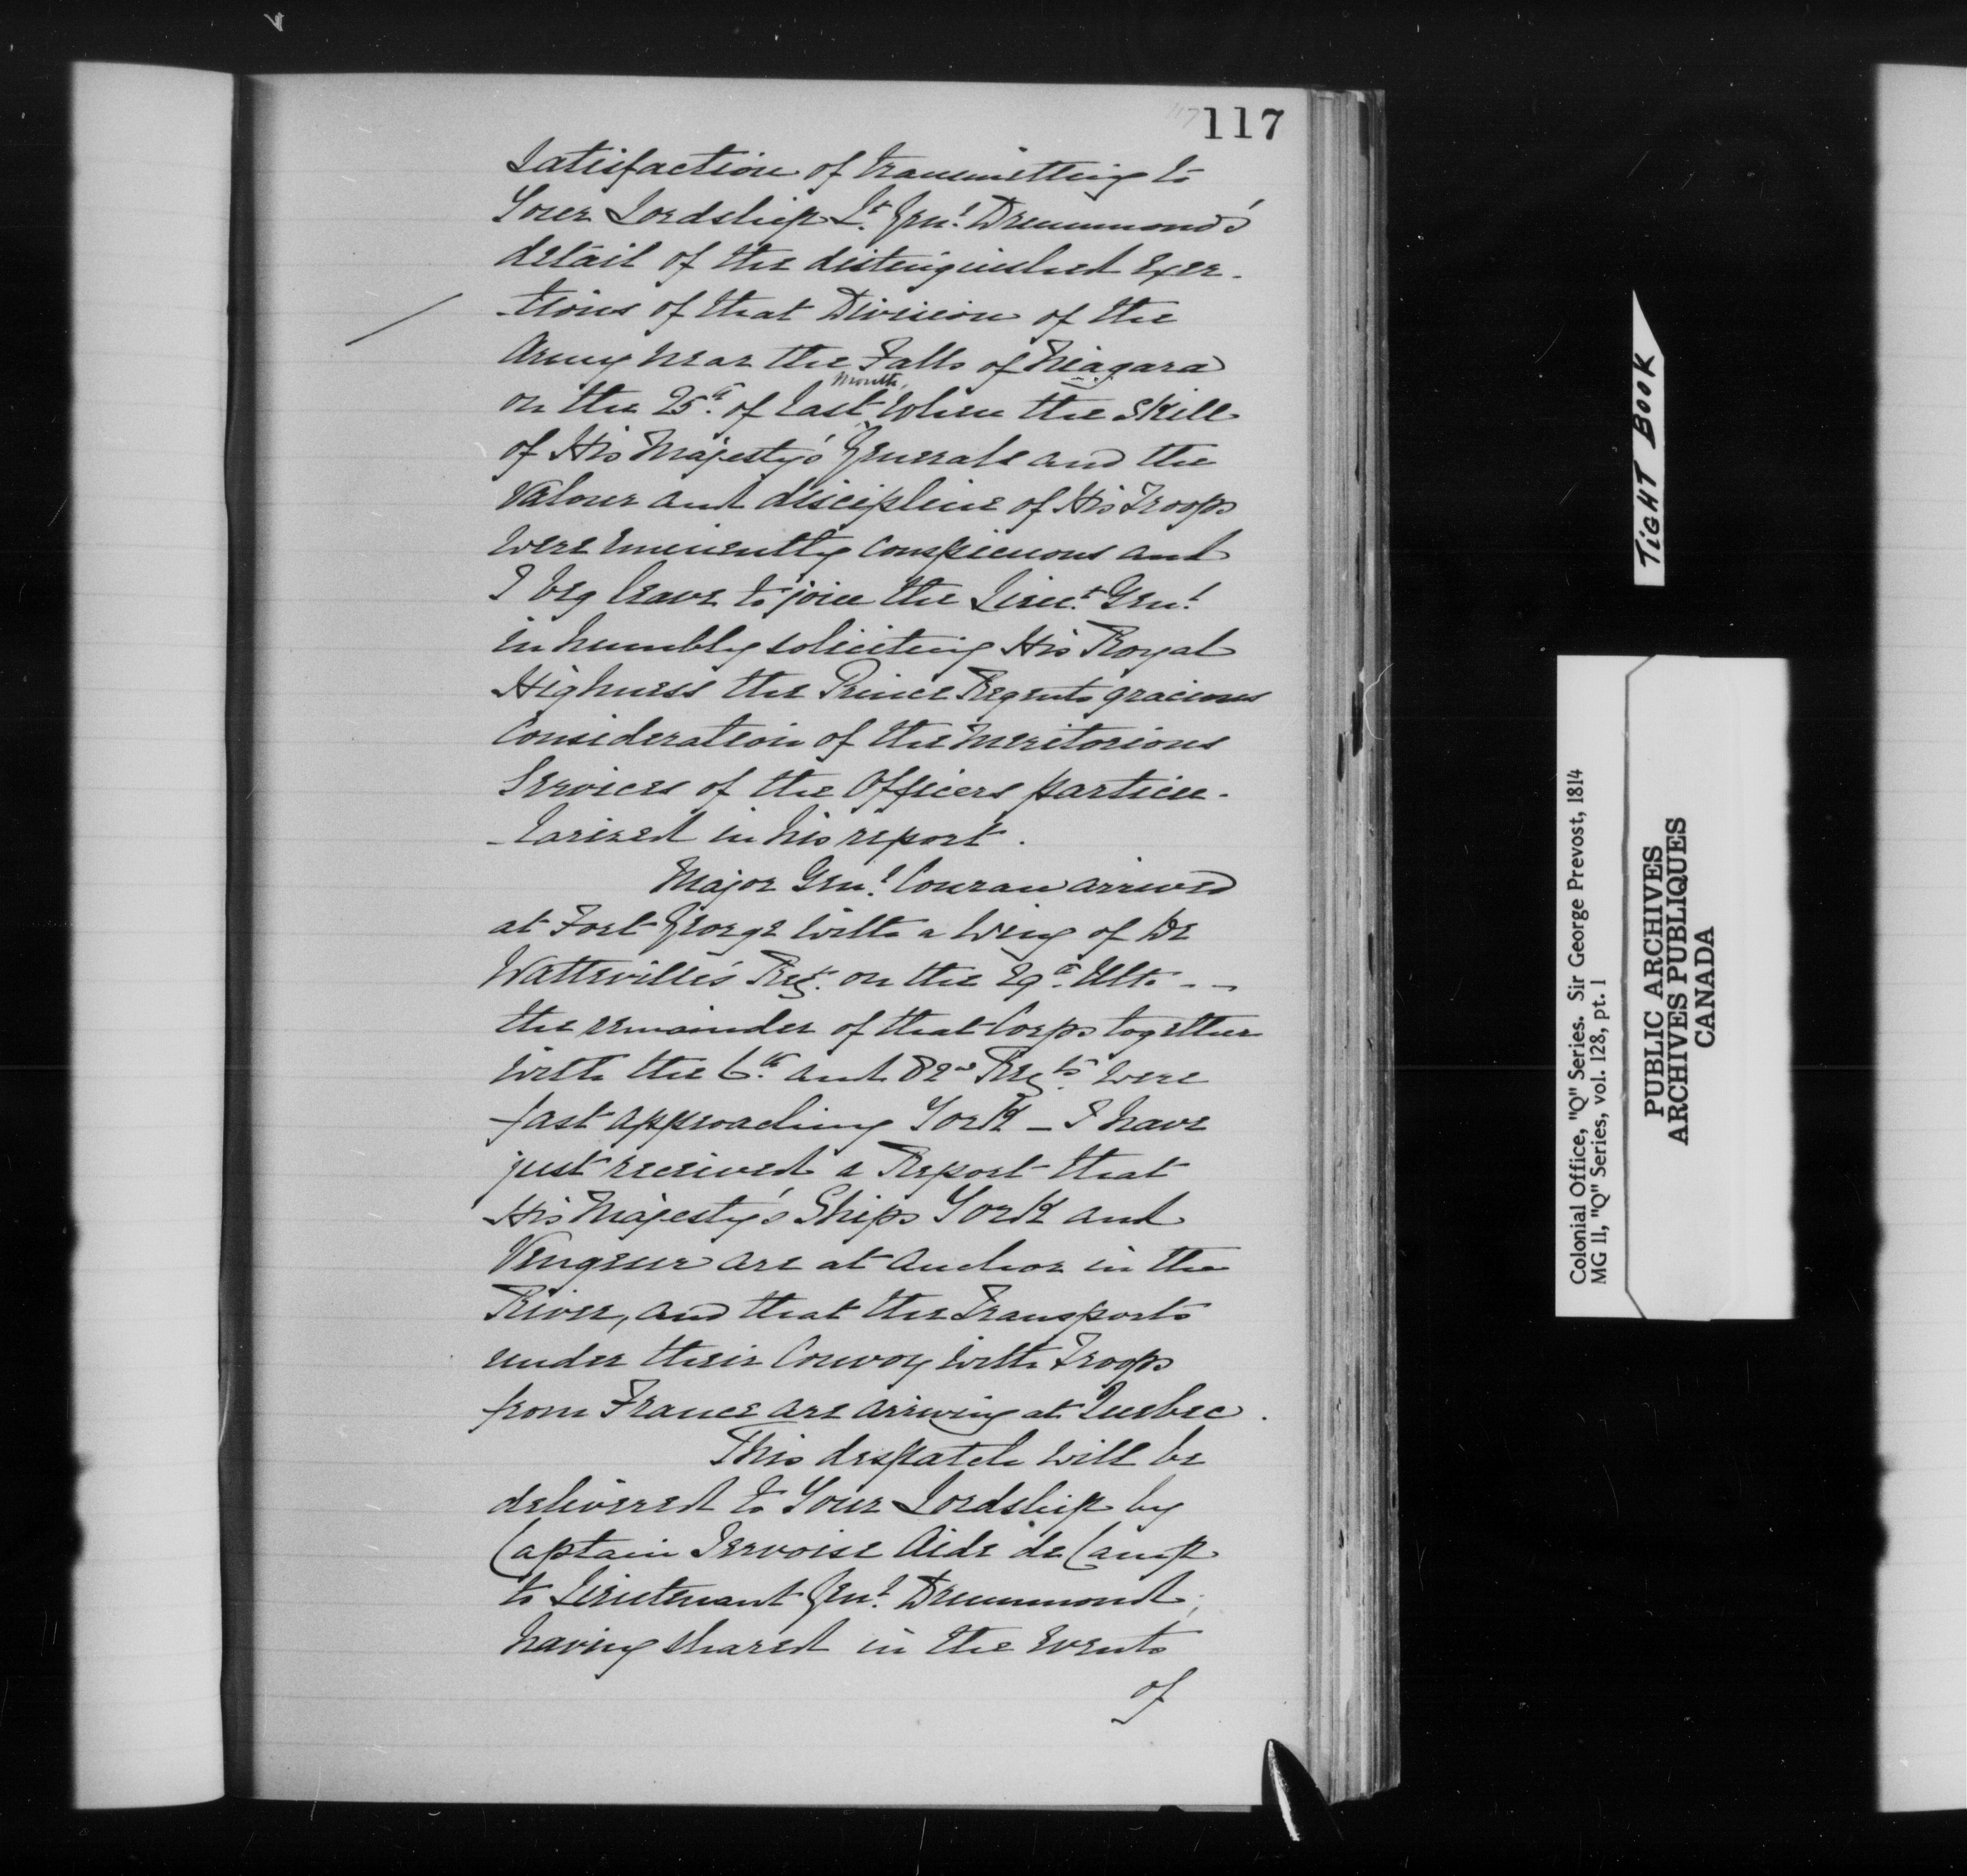 117
117
satisfaction of transmitting to
Your Lordship Lt. Genl. Drummond's
detail of the distinguished exer-
-tions of that Division of the
Army near the Falls of Niagara
on the 25th. of last month, when the skill
of His Majesty's Generals and the
Valour and discipline of His Troops
were eminently conspicuous and
I beg leave to join the Lieut. Genl.
in humbly soliciting His Royal
Highness the Prince Regents gracious
Consideration of the meritorious
Services of the Officers particu-
-larized in his report.
Major Genl. Conran arrived
at Fort George with a Wing of De
Watteville's Regt. on the 29th. Ulto - -
the remainder of that Corps together
with the 6th. and 82nd Regts. were
fast approaching York - I have
just received a Report that
His Majesty's Ships York and
Vengeur are at anchor in the
River, and that the Transports
under their Convoy with Troops
from France are arriving at Quebec.
This despatch will be
delivered to Your Lordship by
Captain Jervoise Aide de Camp
to Lieutenant Genl. Drummond,
having shared in the Events
of
TIGHT BOOK
Colonial Office, "Q" Series. Sir George Prevost, 1814
MG 11, "Q" Series, vol. 128, pt. 1
PUBLIC ARCHIVES
ARCHIVES PUBLIQUES
CANADA